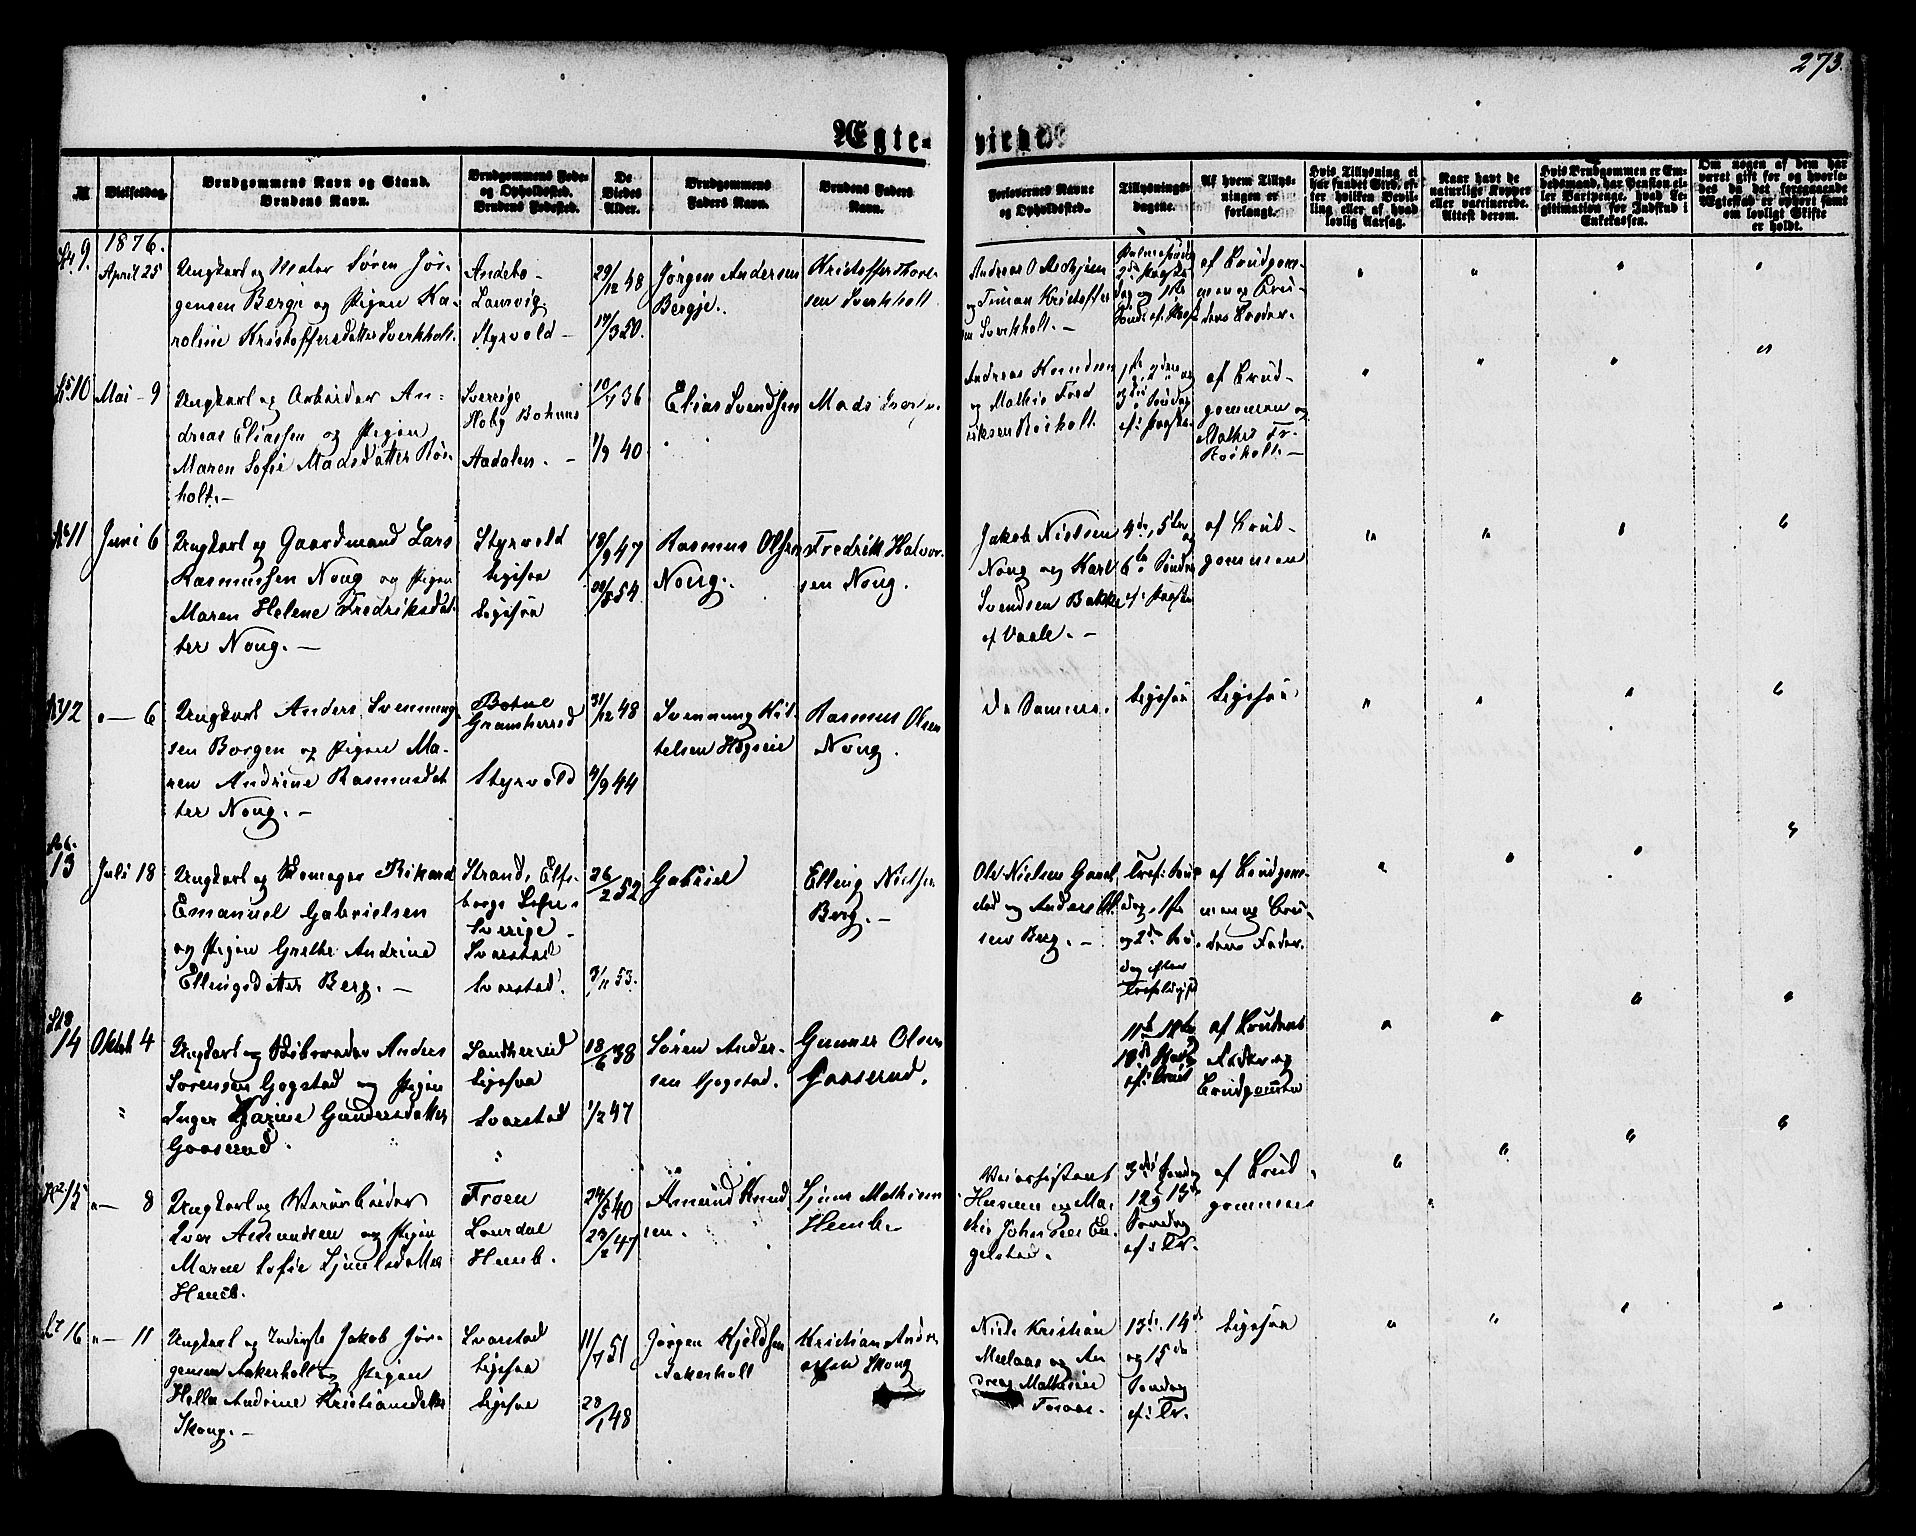 273.
Ægte-
viede
№
Vielsesdag.
Brudgommens Navn og Stand.
Brudens Navn.
Brudgommens Føde-
og Opholdssted.
Brudens Fødested.
De
Viedes
Alder.
Brudgommens
Faders Navn.
Brudens Faders
Navn.
Forlovernes Navne
og Opholdssted.
Tillysnings-
dagene.
Af hvem Tillys-
ningen er
forlangt.
Hvis Tillysning ei
har fundet Sted, ef-
ter hvilken Bevil-
ling eller af hvad
lovlig Aarsag.
Naar havt de
naturlige Kopper
eller vaccinerede.
Attest derom.
Hvis Brudgommen er Em-
bedsmand, har Pension el-
ler Vartpenge, hvad Le-
gitimation for Indskud i
Enkekassen.
Om nogen af dem har
været gift før og hvorle-
des da det foregaaende
Ægteskab er ophørt samt
om lovligt Skifte
er holdt.
9.
1876.
April 25
Ungkarl og Maler Søren Jør-
gensen Bergje og Pigen Ka-
roline Kristoffersdatter Sverkholt.
Andebo
Laurvig
Styrvold
29/12 48
17/3 50.
Jørgen Andersen
Bergje.
Kristoffer Thor
sen Sverkholt
Andreas O
og Simon Kristoffer
sen Sverkholt. —
af Brudgom-
men og Bru-
dens Broder.
10
Mai — 9
Ungkarl og Arbeider An-
dreas Eliassen og Pigen
Maren Sofie Madsdatter Røs-
holt. —
Sverige
Aadalen. —
10/7 36
1/9 40
Elias Svendsen
Mads Iver
Andreas Knudsen
og Mathis Fred
riksen Røsholt.
1ste, 2den og
3die Søndag
ef: Paaske.
af Brud-
gommen og
Mathis Fr.
Røsholt. —
11
Juni 6
Ungkarl og Gaardmand Lars
Rasmussen Noug og Pigen
Maren Helene Fredriksdat-
ter Noug. —
Styrvold
Ligesaa
Ligesaa
18/9 47
28/8 54
Rasmus Olsen
Noug.
Fredrik Halvor-
sen Noug.
Jakob Nielsen
Noug og Karl
Svendsen Bakke
af Vaale. —
4de, 5te og
6te Søndag
ef: Paaske
af Brud-
gommen
12
" — 6
Ungkarl Anders Svenning-
sen Borgen og Pigen Ma-
ren Andrine Rasmusdat-
ter Noug. —
Botne
Gransherred
Styrvold
31/12 48
4/9 44
Svenning Kit-
telsen Høgseie
Rasmus Olsen
Noug.
De Samme.
Ligesaa
Ligesaa
13
Juli 18
Ungkarl og Skomager Rikard
Emanuel Gabrielsen
og Pigen Grethe Andrine
Ellingsdatter Berg. —
Strand, Elfs-
borgs Lehn
Sverige
Svarstad
Svarstad.
26/2 52
3/11 53.
Gabriel
Elling Nielsen
Berg. —
Ole Nielsen
og Anders Ol.
sen Berg. —
Tref: Søn-
dag, 1ste
og 2den Søn-
dag efter
af Brudgom-
men og Bru-
dens Fader.
14
Oktob 4
Ungkarl og Anders
Sørensen Gogstad og Pigen
Inger Karine Gundersdatter
Gaaserud.
Sandherred
Ligesaa
Svarstad
18/6 38
1/2 47
Søren Ander-
sen Gogstad.
Gunner Olsen
Gaaserud.
af Brudens
Fader og
Brudgommen
15
" — 8
Ungkarl og
Iver Amundsen og Pigen
Maren Sofie Ljunelsdatter
Hemb.
Froen
Laurdal
Hemb.
24/5 40
29/2 47
Amund Knud
sen.
Mathisen
Hemb. —
Veiassistent
3die Søndag
12 og 13de
Søndag
ef: Tr.
af Brud-
gommen
16
" — 11
Ungkarl og Inderst Jakob Jør-
gensen Aakerholt og Pigen
Hella Andrine Kristiansdatter
Skoug. —
Svarstad
Ligesaa
Ligesaa
11/7 51
28/1 48
Jørgen Kjeldsen
Aakerholt
Kristian Andr
Skoug
Niels Kristian
Mælaas og An
dreas Mathisen
13de, 14de
og 15de
Søndag
ef: Tr.
Ligesaa